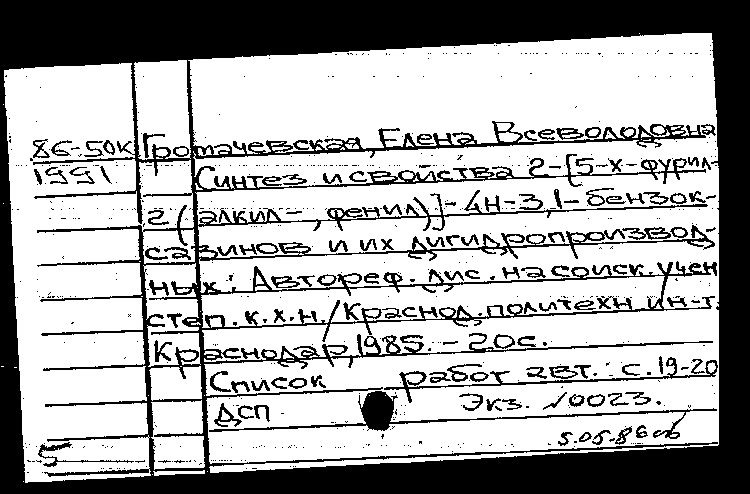 86-50к Громачевская, Елена Всеволодовна
1991 Синтез и свойства 2-[5-х-фурил-
2(алкил-, фенил)]-4н-3,1-бензок-
сазинов и их дигидропроизвод-
ных: Автореф. дис. на соиск. учен
степ. к.х.н./Краснод. политехн. ин-т.
Краснодар, 1985. - 20с.
Список работ авт.: с. 19-20
ДСП Экз. №0023.
5 5.05.86